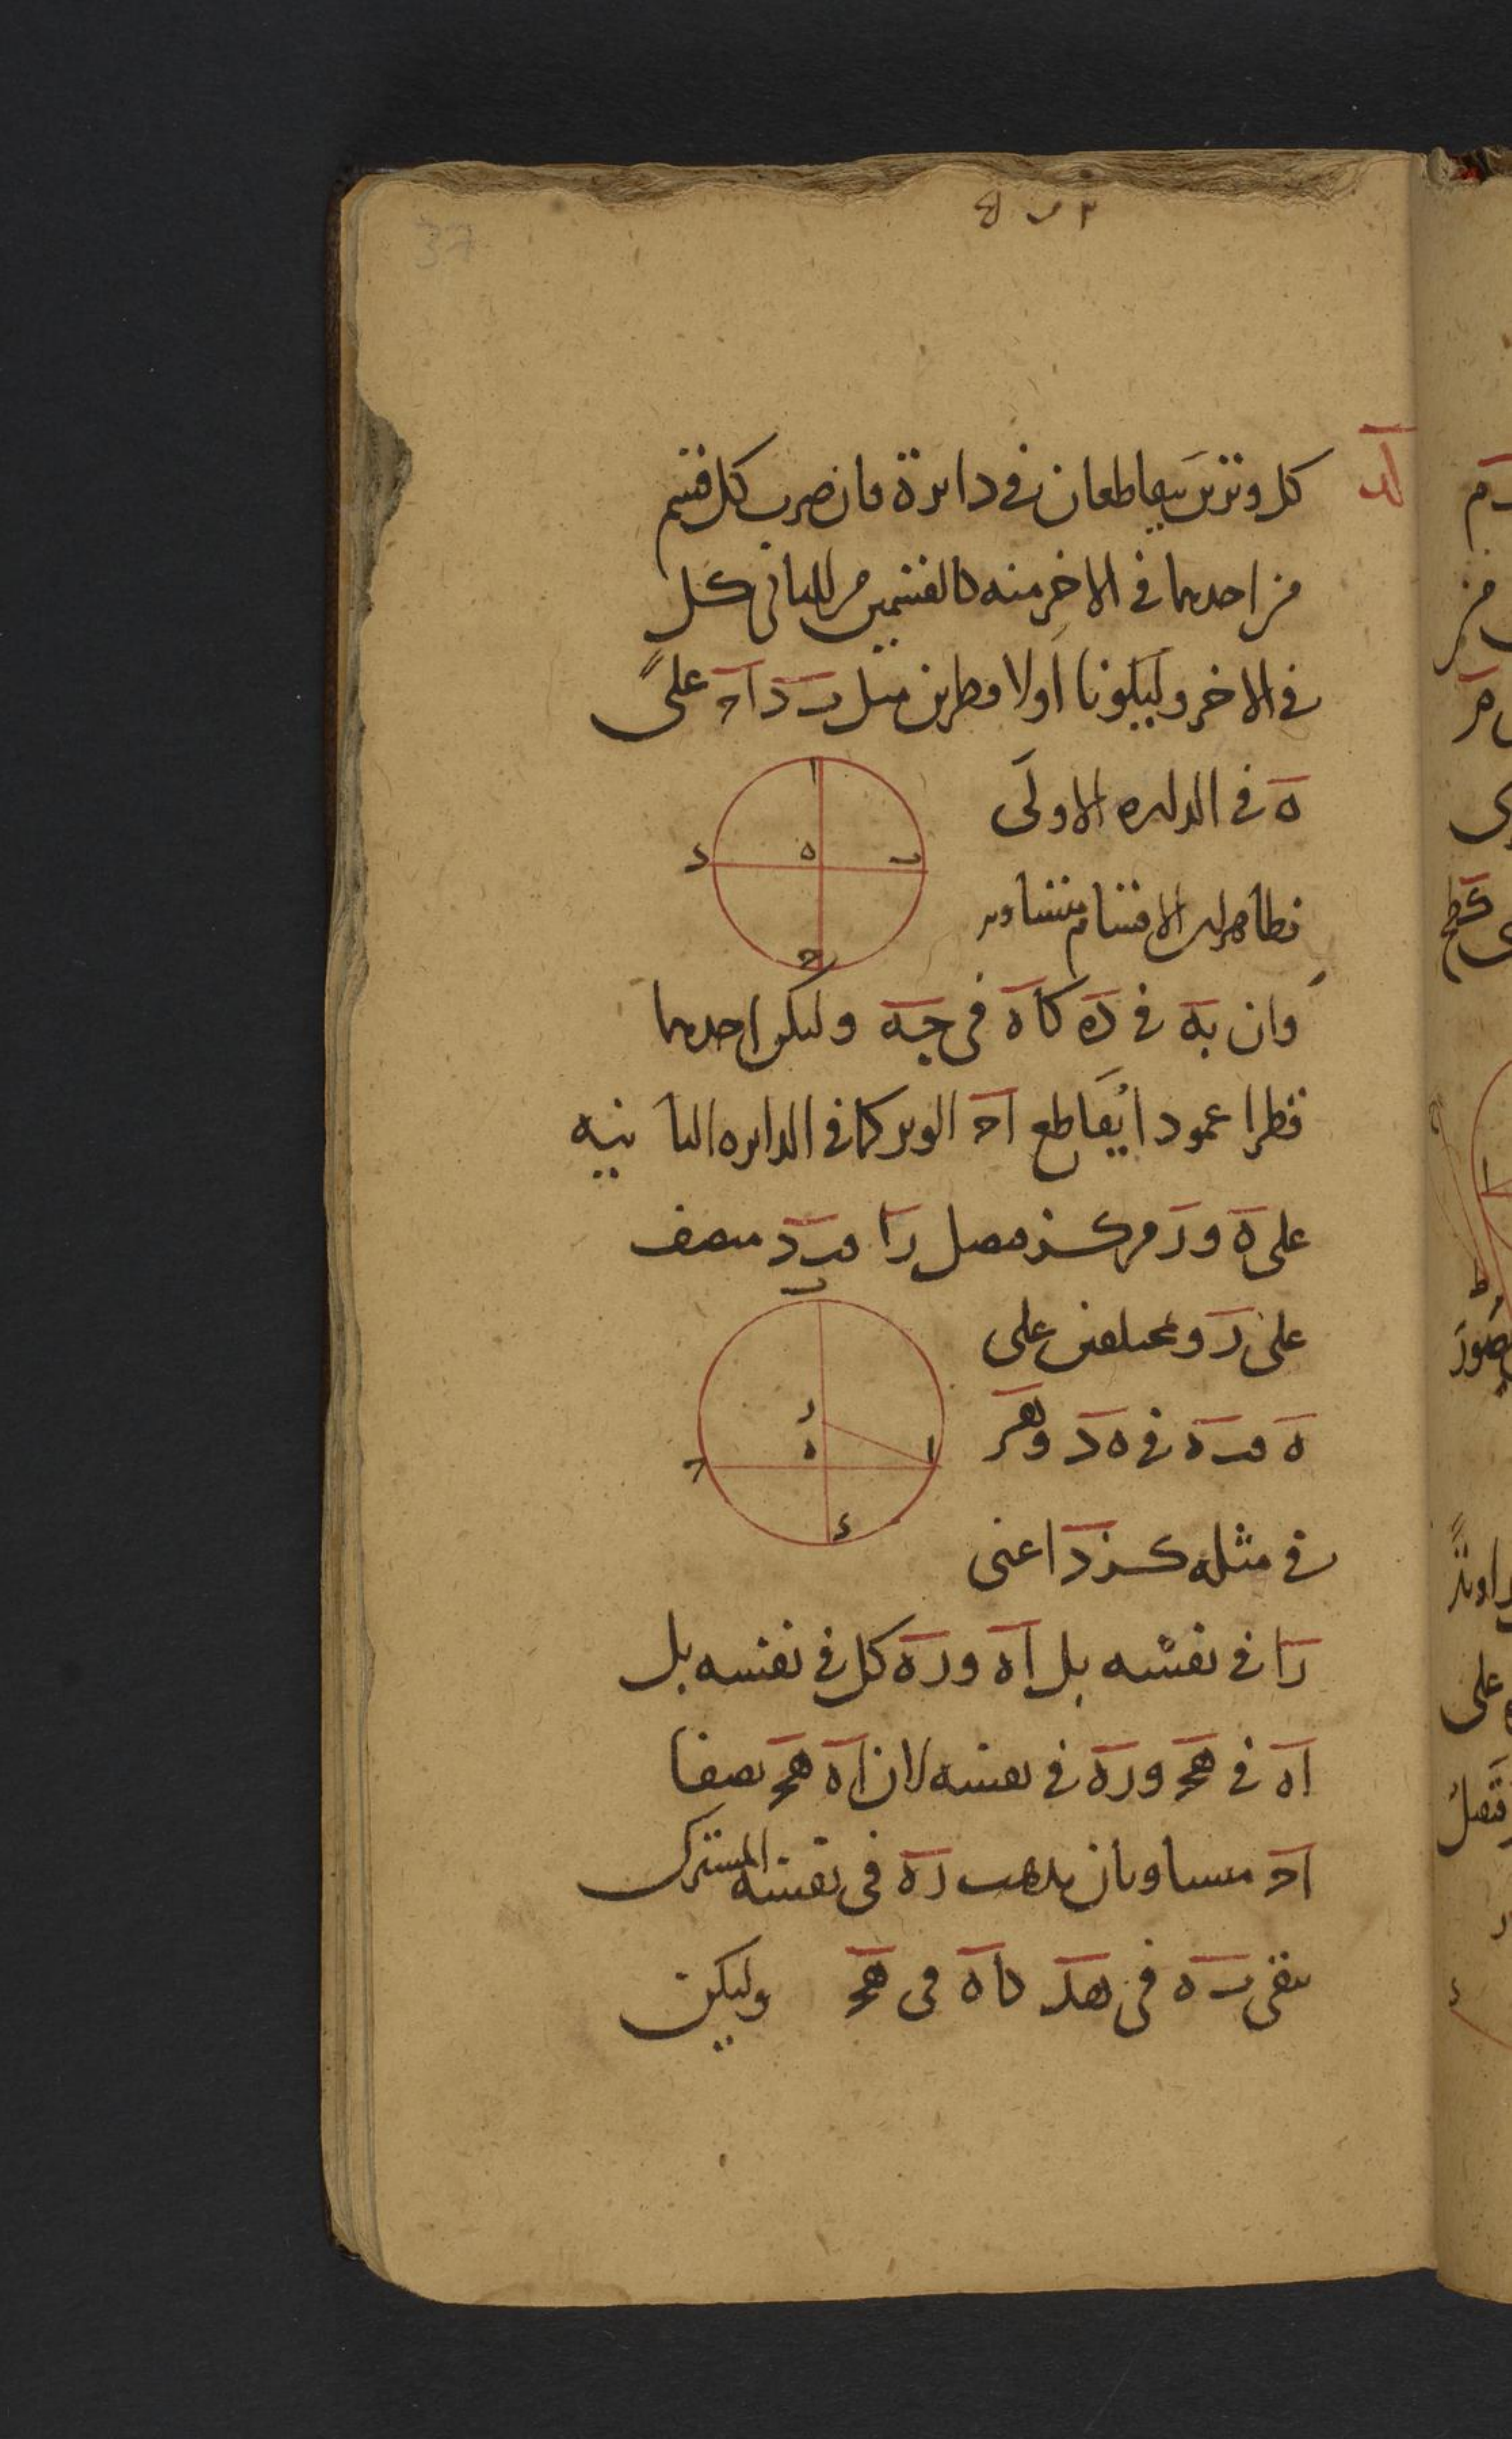 37
لد
كل وترين يتقاطعان في دايرة فان ضرب كل قسم
من احدهما في الاخر منه كالقسمين من الثاني كل
في الاخر وليكونا اولا قطرين مثل ب د ا ح على
ه في الدايره الاولى
فظاهر ان الاقسام متساويه
وان به في ده كاه في جه وليكن احدهما
قطرا عمودا يقاطع ا ح الوتر كما في الدايره الثانيه
على ه و ر مركز فصل را فب د منصف
على ر و بمختلفين على
ه فب ه في ه د و هر
في مثله كر د اعنى
را في نفسه بل اه و ره كل في نفسه بل
اه في هح و ره في نفسه لان اه هح نصفا
اح متساويان يذهب ره في نفسه المشترك
يبقى ب ه في هد كاه في هح وليكن
ا
ب
ه
د
ح
ب
ر
ه
ا
ح
د